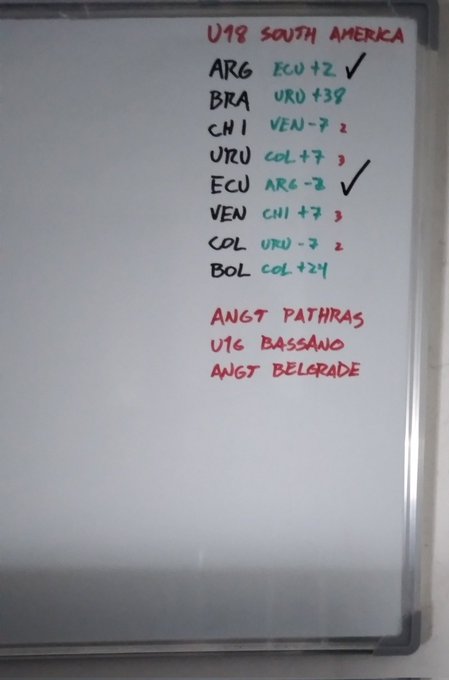 U18 SOUTH AMERICA
ARG ECU +2 ✓
BRA URU +38
CHI VEN -7 2
URU COL +7 3
ECU ARG -2 ✓
VEN CHI +7 3
COL URU -7 2
BOL COL +24
ANGT PATHRAS
U16 BASSANO
ANGT BELGRADE